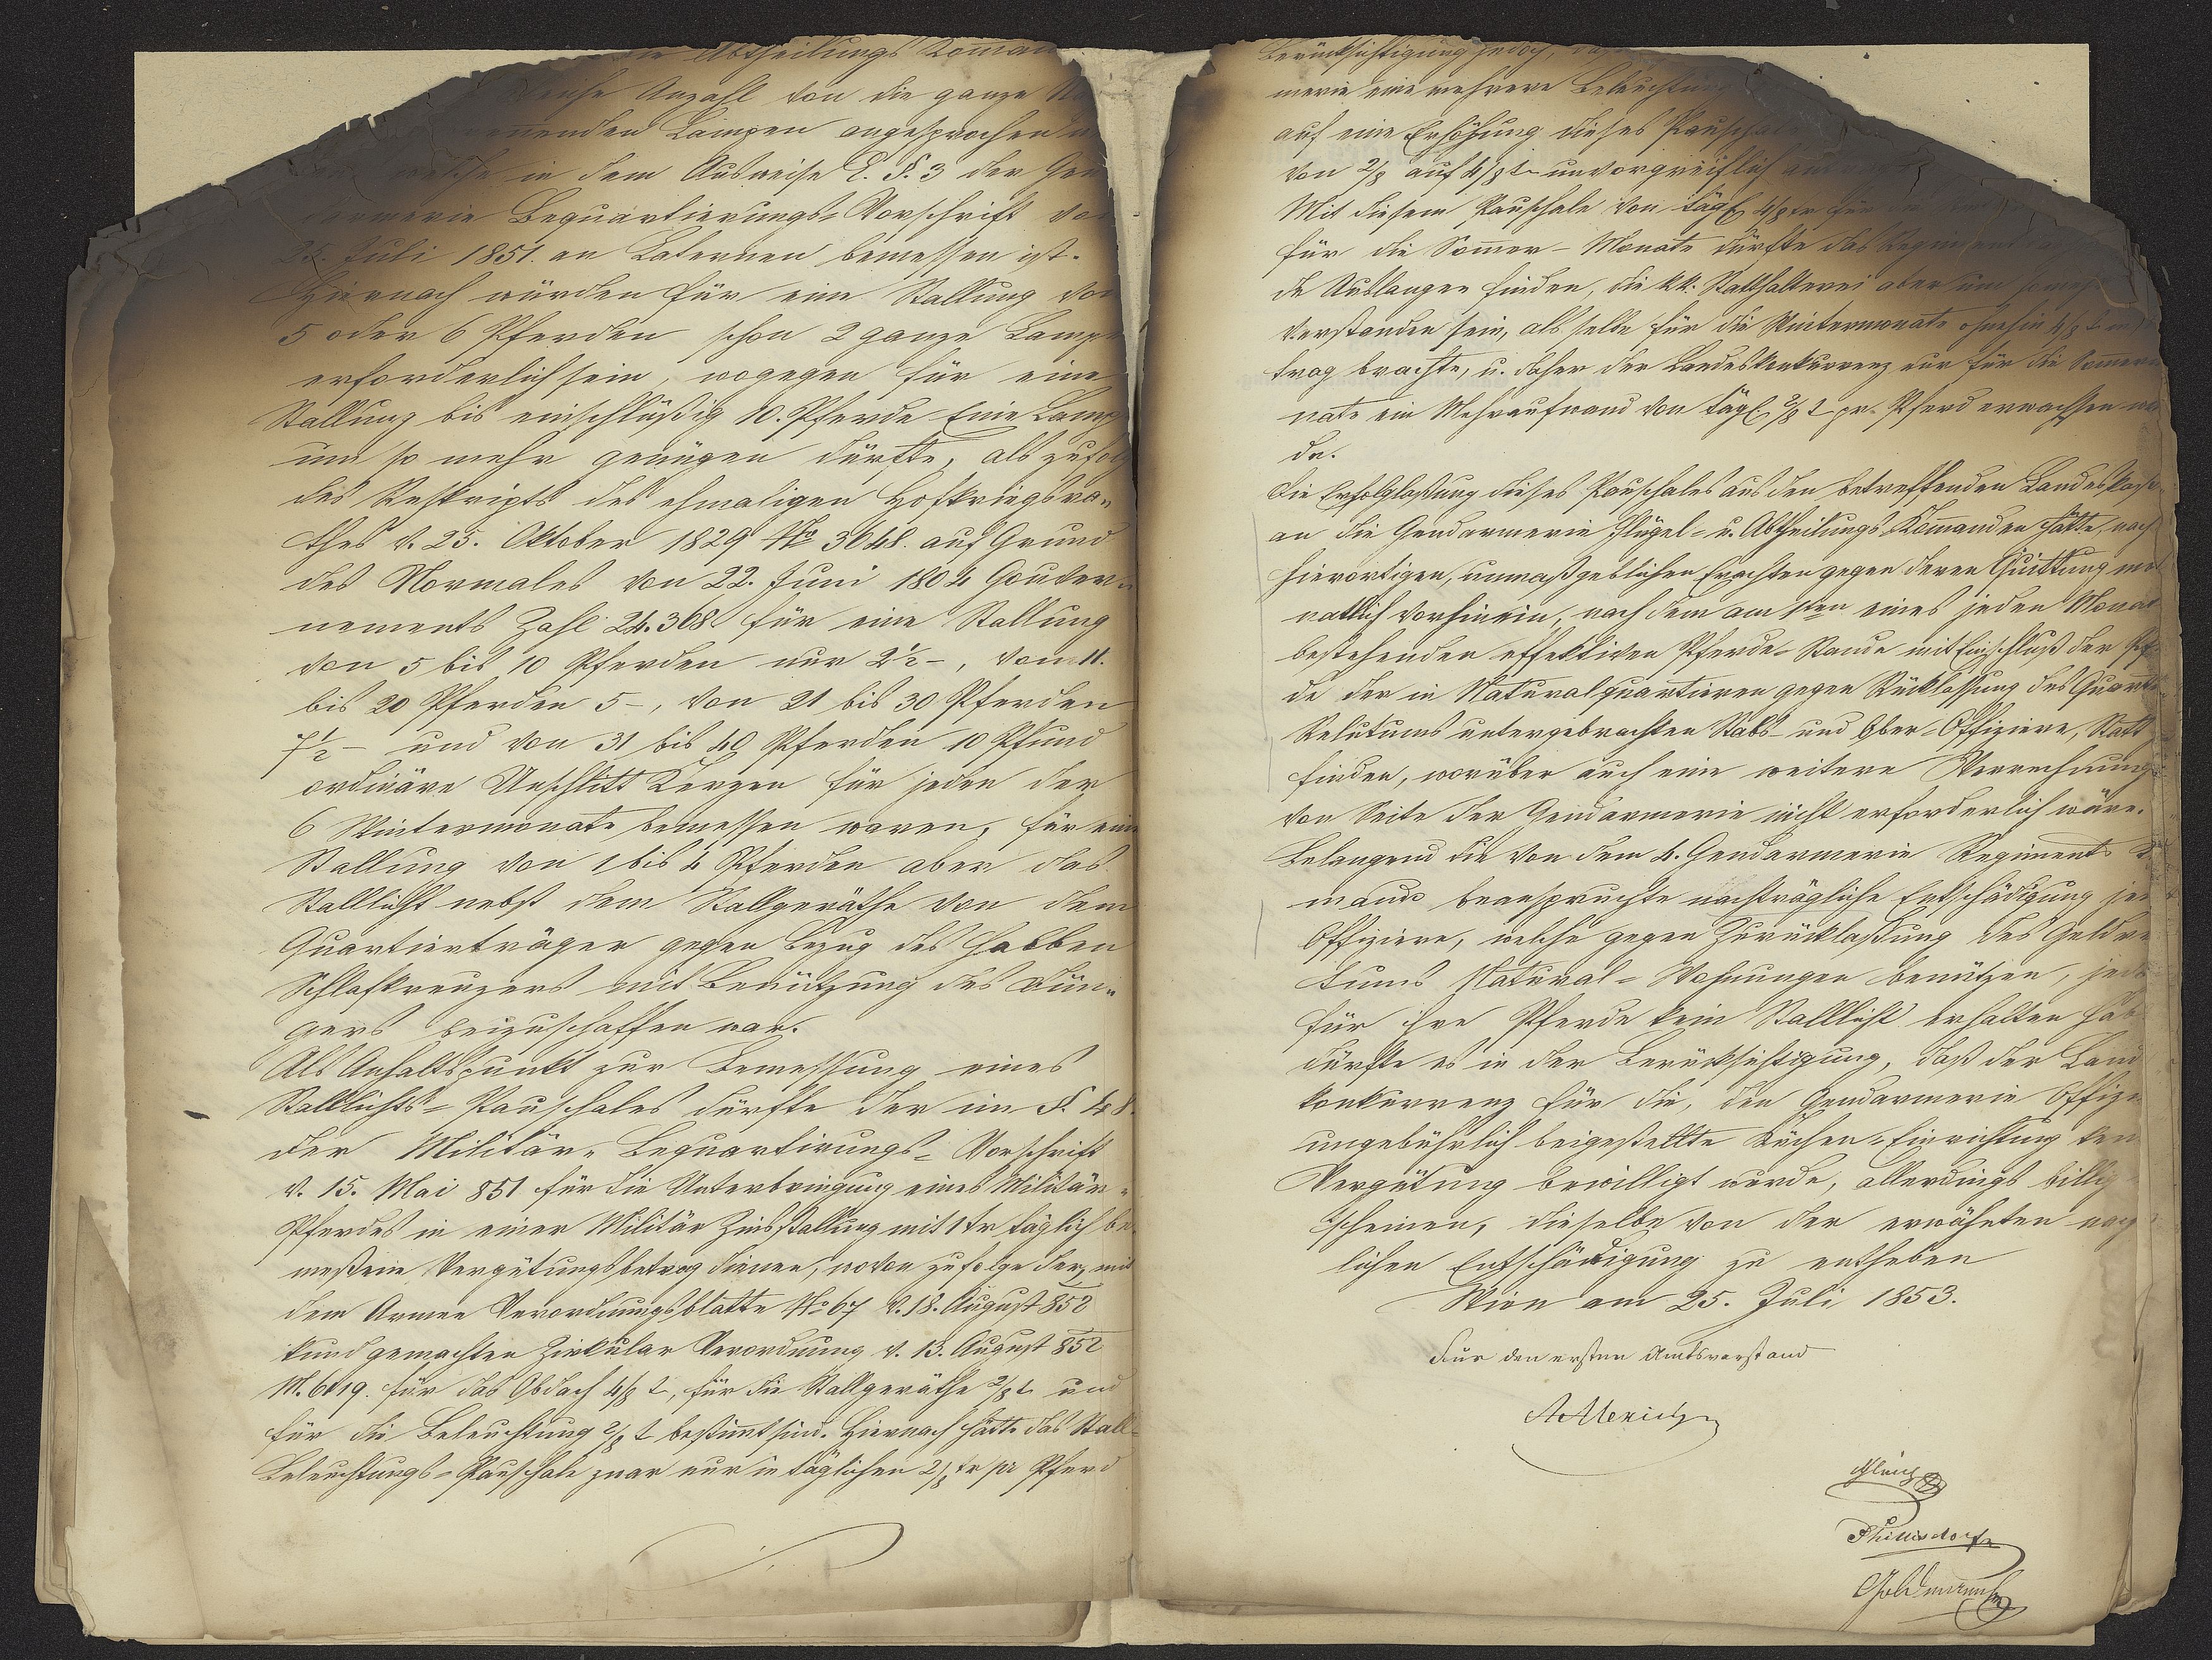 die Abtheilungs Koman
Anzahl von die ganze
nenden Lampen angesprochen
welche in dem Ausweise E. §. 3 der Gen
armerie Bequartierungs-Vorschrift vo
25. Juli 1851. an Laternen bemessen ist.
Hiernach würden für eine Stallung von
5 oder 6 Pferden schon 2 ganze Lampe
erforderlich sein, wogegen für eine
Stallung bis einschlüßig 10. Pferde Eine Lamp
um so mehr genügen dürfte, als zufolg
des Reskripts des ehmaligen Hofkriegsra„
thes v. 23. Oktober 1829 No 3648. auf Grund
des Normales von 22. Juni 1804 Gouver„
nements Zahl 24.368 für eine Stallung
von 5 bis 10 Pferden nur 2½ -, vom 11.
bis 20 Pferden 5 -, von 21 bis 30 Pferden
7½ - und von 31 bis 40 Pferden 10 Pfund
ordinäre Unschlitt Kerzen für jeden der
6 Wintermonate bemessen waren, für eine
Stallung von 1 bis 4 Pferden aber das
Stalllicht nebst dem Stallgeräthe von dem
Quartierträger gegen Bezug des halben
Schlafkreuzers mit Benützung des Dün„
gers beizuschaffen war.
Als Anhaltspunkt zur Bemessung eines
Stalllichts-Pauschales dürfte der im §. 48.
der Militär-Bequartirungs-Vorschrift
v. 15. Mai 851 für die Unterbringung eines Militär„
Pferdes in einer Militär Zinsstallung mit 1 kr täglich be
meßene Vergütungsbetrag dienen, wovon zufolge der, mit
dem Armee Verordnungsblatte No 67 v. 18. August 852
kund gemachten Zirkular Verordnung v. 13. August 852
M. 6019. für das Obdach 4/8 t, für die Stallgeräthe 2/8 t und
für die Beleuchtung 2/8 t bestimt sind. Hiernach hätte das Stall-
Beleuchtungs-Pauschale zwar nur in täglichen 2/8 kr pr Pferd
Berücksichtigung jedoch,
merie eine mehrere Beleuchtung
auf eine Erhöhung dieses Pauschal
von 2/8 auf 4/8 t unvorgreiflich
Mit diesem Pauschale von tägl 4/8 kr für
für die Somer-Monate dürfte das Regiment
de Auslangen finden, die kk. Statthalterei aber um
verstanden sein, als selbe für die Wintermonate ohnehin 4/8 t
trag brachte, u. daher der Landeskonkurrenz nur für die Somer
nate ein Mehraufwand von tägl. 2/8 t pr. Pferd erwachsen
de.
Die Erfolglaßung dieses Pauschales aus den betreffenden Landeskaß
an die Gendarmerie Flügel- u. Abtheilungs Komanden hätte, nach
hierortigen, unmaßgeblichen Erachten gegen deren Quittung mo
natlich vorhinein, nach dem am 1ten eines jeden Monat
bestehenden effektiven Pferde-Stande mit Einschluß der Pf
de der in Naturalquartieren gegen Rücklassung des Quart
Relutums untergebrachten Stabs- und Ober-Offiziere, Statt
finden, worüber auch eine weitere Verrechnung
von Seite der Gendarmerie nicht erforderlich wäre.
Belangend die von dem 4. Gendarmerie Regiments
mando beanspruchte nachträgliche Entschädigung je
Offiziere, welche gegen Zurücklaßung des Geldre
tums Natural-Wohnungen benützen, jed
für ihre Pferde kein Stalllicht erhalten hab
dürfte es in der Berücksichtigung, daß der Land
konkurrenz für die, den Gendarmerie Offizi
ungebührlich beigestellte Küchen-Einrichtung kei
Vergütung bewilligt wurde, allerdings billig
scheinen, dieselbe von der erwähnten nach
lichen Entschädigung zu entheben
Wien am 25. Juli 1853.
Für den ersten Amtsvorstand